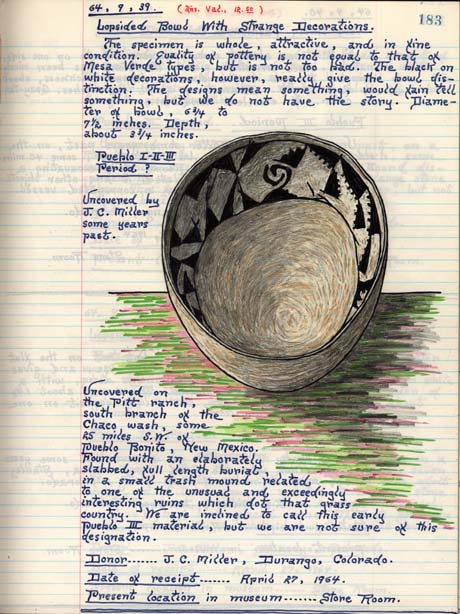 64, 9, 39.
(Ins. Val., 12.00)
183
Lopsided Bowl With Strange Decorations.
The specimen is whole, attractive, and in fine
condition. Quality of pottery is not equal to that of
Mesa Verde types, but is not too bad. The black on
white decorations, however, really give the bowl dis-
tinction. The designs mean something, would fain tell
something, but we do not have the story. Diame-
ter of bowl, 6 3/4 to
7 1/2 inches. Depth,
about 3 3/4 inches.
Pueblo I-II-III
Period ?
Uncovered by
J. C. Miller
some years
past.
Uncovered on
the Pitt ranch,
south branch of the
Chaco wash, some
25 miles S.W. of
Pueblo Bonito, New Mexico.
Found with an elaborately
slabbed, full length burial,
in a small trash mound related
to one of the unusual and exceedingly
interesting ruins which dot that grass
country. We are inclined to call this early
Pueblo III material, but we are not sure of this
designation.
Donor....... J. C. Miller, Durango, Colorado.
Date of receipt...... April 27, 1964.
Present location in museum....... Store Room.